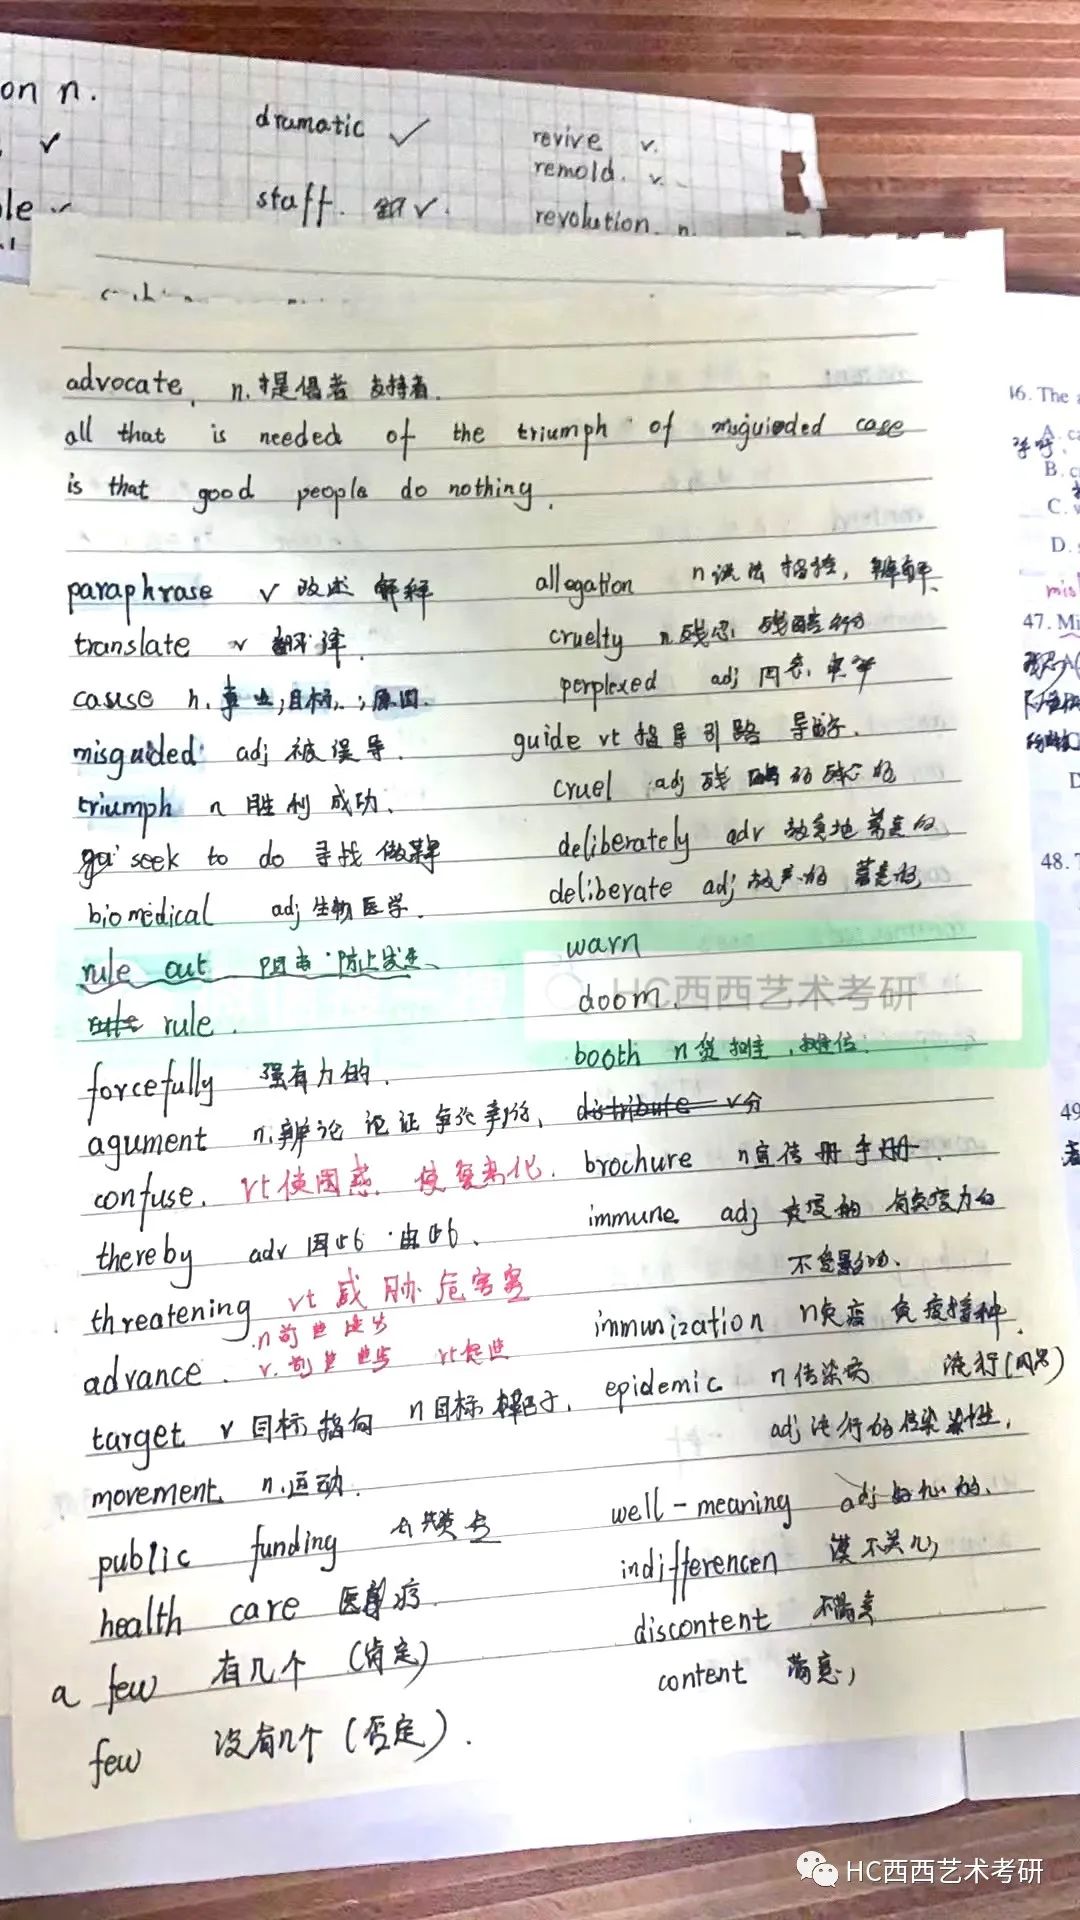 on n.
dramatic ✓
revive v.
remold. v.
staff.
revolution. n.
advocate. n.提倡者 支持者.
all that is needed of the triumph of misguieded case
is that good people do nothing.
paraphrase v 改述 解释
translate v 翻译.
casuse n. 事业;目标.;原因.
misguided adj 被误导.
triumph n 胜利成功.
seek to do 寻找 做某事
biomedical adj 生物医学.
rule out 阻止·防止发生、
rule.
forcefully 强有力的.
agument n.辩论 论证 争论
confuse. vt使困惑 使复杂化.
thereby adv 因此·由此、
threatening vt 威胁 危害
advance. n前进 进步
v.前进 进步 vt促进
target v 目标,指向 n目标 靶子.
movement n.运动.
public funding
health care 医疗
a few 有几个 (肯定)
few 没有几个 (否定).
allegation n说法 指控,
cruelty n残忍 残酷
perplexed adj
guide vt 指导引路 导游.
cruel adj 残酷的 残忍的
deliberately adv 故意地 蓄意的
deliberate adj 故意的 蓄意的
warn
doom.
booth n货摊 摊位.
distribute v分
brochure n宣传册手册.
immune adj 免疫的 有免疫力的
不受影响.
immunization n免疫 免疫接种.
epidemic n传染病 流行(风尚)
adj流行的传染性.
well-meaning adj好心的、
indifferencen 漠不关心,
discontent 不满意
content 满意,
16. The
B. c
C.
D.
47. Mi
48.
49
HC西西艺术考研
HC西西艺术考研